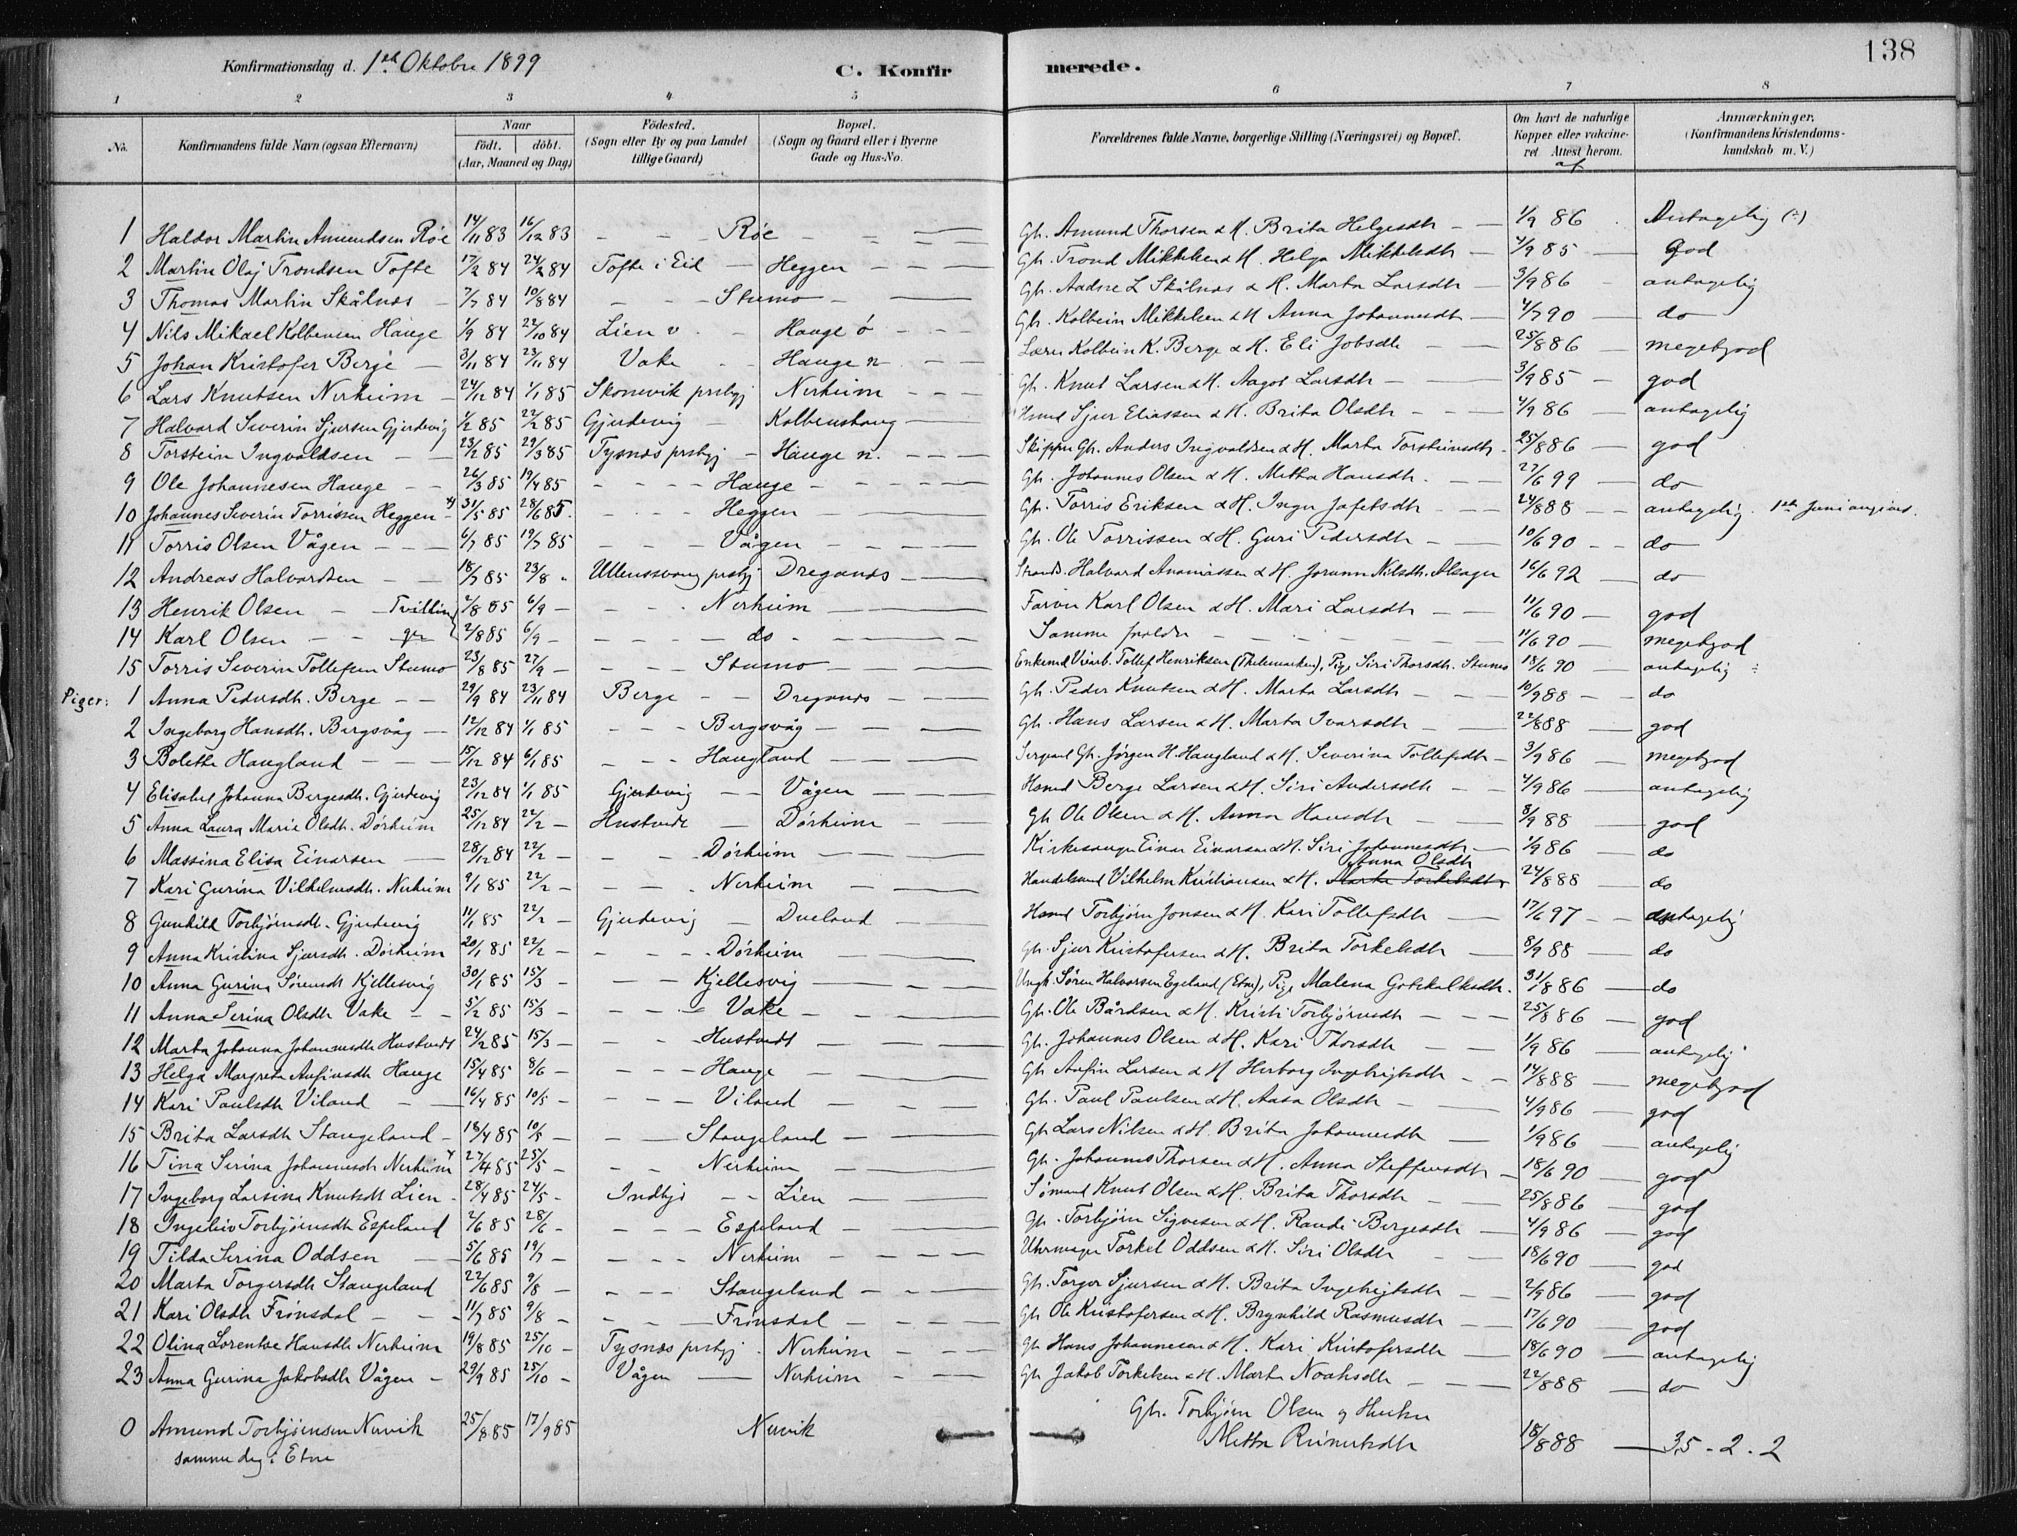 138
Konfirmationsdag d. 1ste Oktober 1899 C. Konfirmerede.
1 2 3 4 5 6 7 8
No. Konfirmandens fulde Navn (ogsaa Efternavn) Naar født. døbt. (Aar, Maaned og Dag) Födested. (Sogn eller By og paa Landet tillige Gaard) Bopæl. (Sogn og Gaard eller i Byerne Gade og Hus-No. Forældrenes fulde Navne, borgerlige Stilling (Næringsvei) og Bopæl. Om havt de naturlige Kopper eller vakcineret. Attest herom. af Anmærkninger. (Konfirmandens Kristendomskundskab m. V.)
1 Haldor Martin Amundsen Röe 14/11 83 16/12 83 - - - Röe - - Gh. Amund Thorsen & H. Brita Helgesdtr - 1/9 86 Antagelig (?)
2 Martin Olaj Trondsen Tofte 17/2 84 24/2 84 Tofte i Eid - Heggen - - - Gh. Trond Mikkelsen & H. Helga Mikkelsdtr - 4/9 85 - God
3 Thomas Martin Skålnæs - 7/7 84 10/8 84 - - Stumo - - Gh. Aadne L Skålnæs & H. Marta Larsdtr - 3/9 86 - antagelig
4 Nils Mikael Kolbensen Hauge 1/9 84 22/10 84 Lien v. - Hauge ö - - - Gh. Kolbein Mikkelsen & H Anna Johannesdtr - 4/7 90 - do
5 Johan Kristofer Berge - 3/11 84 23/11 84 Vake - Hauge n - - Lærer Kolbein K. Berge & H. Eli Jobsdtr - 25/8 86 - megetgod
6 Lars Knutsen Nerheim - 24/12 84 1/1 85 Skonevik prstgj Nerheim - - - Gh. Knut Larsen & H. Aagot Larsdtr - 3/9 85 - god
7 Halvard Severin Sjursen Gjerdevig 1/2 85 22/2 85 Gjerdevig - Kolbenshaug - - Husmd Sjur Eliassen & H. Brita Olsdtr - - 4/9 86 - antagelig
8 Torstein Ingvaldsen - - 23/2 85 29/3 85 Tysnæs prstgj - Hauge n. - - - Skipper Gh. Anders Ingvaldsen & H. Marta Torsteinsdtr - 25/8 86 - god
9 Ole Johannesen Hauge - - 26/3 85 19/4 85 - - - - Hauge - - - Gh. Johannes Olsen & H. Metha Hansdtr. - 27/6 99 - do
10 Johannes Severin Torrissen Heggen 31/5 85 28/6 85. - - - Heggen Gh. Torris Eriksen & H. Inger Jafetsdtr - 24/8 88 - antagelig.
11 Torris Olsen Vågen - - - 6/7 85 19/7 85 - - Vågen - - - Gh. Ole Torrissen & H. Guri Pedersdtr - 10/6 90 - - do
12 Andreas Halvardsen - - 18/7 85 23/8 - Ullensvang prstgj Dreganæs - Strands. Halvard Ananiassen & H. Johann Nilsdtr. Alsager 16/6 92 - do
13 Henrik Olsen - - Tvillin 2/8 85 6/9 - - - - Nerheim - Farver Karl Olsen & H. Mari Larsdtr - - 11/6 90 - god
14 Karl Olsen - - ger 2/8 85 6/9 - - - - do - - - Samme forældre - - - - 11/6 90 - megetgod
15 Torris Severin Tollefsen Stumo 23/8 85 27/9 - - - - Stumo - - Enkemd Tollef Henriksen (Thelemarken), Pige Siri Thorsdtr. Stumo 18/6 90 - antagelig
Piger: 1 Anna Pedersdtr. Berge - - 29/9 84 23/11 84 Berge - - Dreganæs - - Gh. Peder Knutsen & H. Marta Larsdtr - - 10/9 88 - do
2 Ingeborg Hansdtr. Bergsvåg - 12/12 84 1/1 85 - - - Bergsvåg - - Gh. Hans Larsen & H. Marta Ivarsdtr - 22/8 88 - god
3 Bolette Haugland - - - 15/12 84 6/1 85 - - - Haugland - - Sergeant Gh. Jørgen H. Haugland & H. Severina Tollefsdtr - 3/9 86 - megetgod
4 Elisabet Johanna Bergesdtr. Gjerdevig 23/12 84 1/1 85 Gjerdevig - - Vågen - - Husmd Berge Larsen & H. Siri Andersdtr - - 4/9 86 - antagelig
5 Anna Laura Marie Olsdtr. Dörheim 25/12 84 22/2 - Hustvedt - Dörheim - - Gh Ole Olsen & H. Anna Hansdtr - - 8/9 88 - god
6 Massina Elisa Einarsen - - 28/12 84 22/2 - - - Dörheim - Kirkesanger Einar Einarsen & H. Siri Johannesdtr - 1/9 86 - do
7 Kari Gurina Vilhelmsdtr. Nerheim 9/1 85 22/2 - - - Nerheim - Handelsmd Vilhelm Kristiansen & H. Marta Torkelsdtr Anna Olsdtr 24/8 88 - do
8 Gunhild Torbjörnsdtr. Gjerdevig 11/1 85 22/2 - Gjerdevig - Dueland - Husmd Torbjörn Jonsen & H. Kari Tollefsdtr - - 17/6 97 - - antagelig
9 Anna Kristina Sjursdtr. Dörheim 20/1 85 22/2 - - - - Dörheim - Gh. Sjur Kristofersen & H. Brita Torkelsdtr - 8/9 88 - do
10 Anna Gurina Sörensdtr Kjellesvig 30/1 85 15/3 - - - Kjellesvig - - Ungk. Sören Halvorsen Egeland (Etne), Pige Malena Gotskalksdtr. 31/8 86 - do
11 Anna Serina Olsdtr Vake - - 5/2 85 15/3 - - - Vake - - Gh. Ole Bårdsen & H. Kristi Torbjörnsdtr - - - 25/8 86 - god
12 Marta Johanna Johannesdtr Hustvedt 24/2 85 15/3 - - - Hustvedt - - Gh. Johannes Olsen & H. Kari Thorsdtr - 1/9 86 - antagelig
13 Helga Margreta Anfinsdtr Hauge 15/4 85 8/6 - - - - Hauge - - Gh Anfin Larsen & H Herborg Ingebrigtsdtr - - 14/8 88 - megetgod
14 Kari Paulsdtr Viland - - 16/4 85 10/5 - - - - Viland - - Gh. Paul Paulsen & H. Aasa Olsdtr - - 4/9 86 - god
15 Brita Larsdtr Stangeland - 18/4 85 10/5 - - - Stangeland - - Gh Lars Nilsen & H. Brita Johannesdtr - 1/9 86 - antagelig
16 Tina Serina Johannesdtr Nerheim 27/4 85 25/5 - - - Nerheim - - Gh. Johannes Thorsen & H. Anna Steffensdtr - 18/6 90 - god
17 Ingeborg Larsina Knutsdtr Lien - 28/4 85 24/5 - Indbjo - - Lien - - Sömand Knut Olsen & H. Brita Thorsdtr - 25/8 86 - god
18 Ingeleiv Torbjörnsdtr Espeland 2/6 85 28/6 - - - - Espeland - Gh. Torbjörn Sigvesen & H. Randi Bergesdtr - 4/9 86 - god
19 Tilda Serina Oddsen - - 5/6 85 19/7 - - - - Nerheim - - - Uhrmager Torkel Oddsen & H. Siri Olsdtr 18/6 90 - god
20 Marta Torgersdtr Stangeland 22/6 85 9/8 - - - - Stangeland - - Gh. Torger Sjursen & H. Brita Ingebrigtsdtr - 2/9 86 - god
21 Kari Olsdtr Frönsdal - - 11/7 85 9/8 - - - - Frönsdal - - Gh Ole Kristofersen & H. Brynhild Rasmusdtr - 17/6 90 - god
22 Olina Lorentse Hansdtr Nerheim 19/8 85 25/10 - Tysnæs prstgj - Nerheim - - - Gh Hans Johannesen & H. Kari Kristofersdtr - 18/6 90 - antagelig
23 Anna Gurina Jakobsdtr Vågen - 29/9 85 25/10 - Vågen - Nerheim - - - Gh Jakob Torkelsen & H. Marta Noahsdtr - - 22/8 88 - do
0 Amund Torbjörnsen Nervik 25/8 85 17/9 85 Nervik Gh. Torbjörn Olsen og Hustru
samme dag i Etne Metta Reinertsdtr 18/8 88 - 35 - 2 - 2